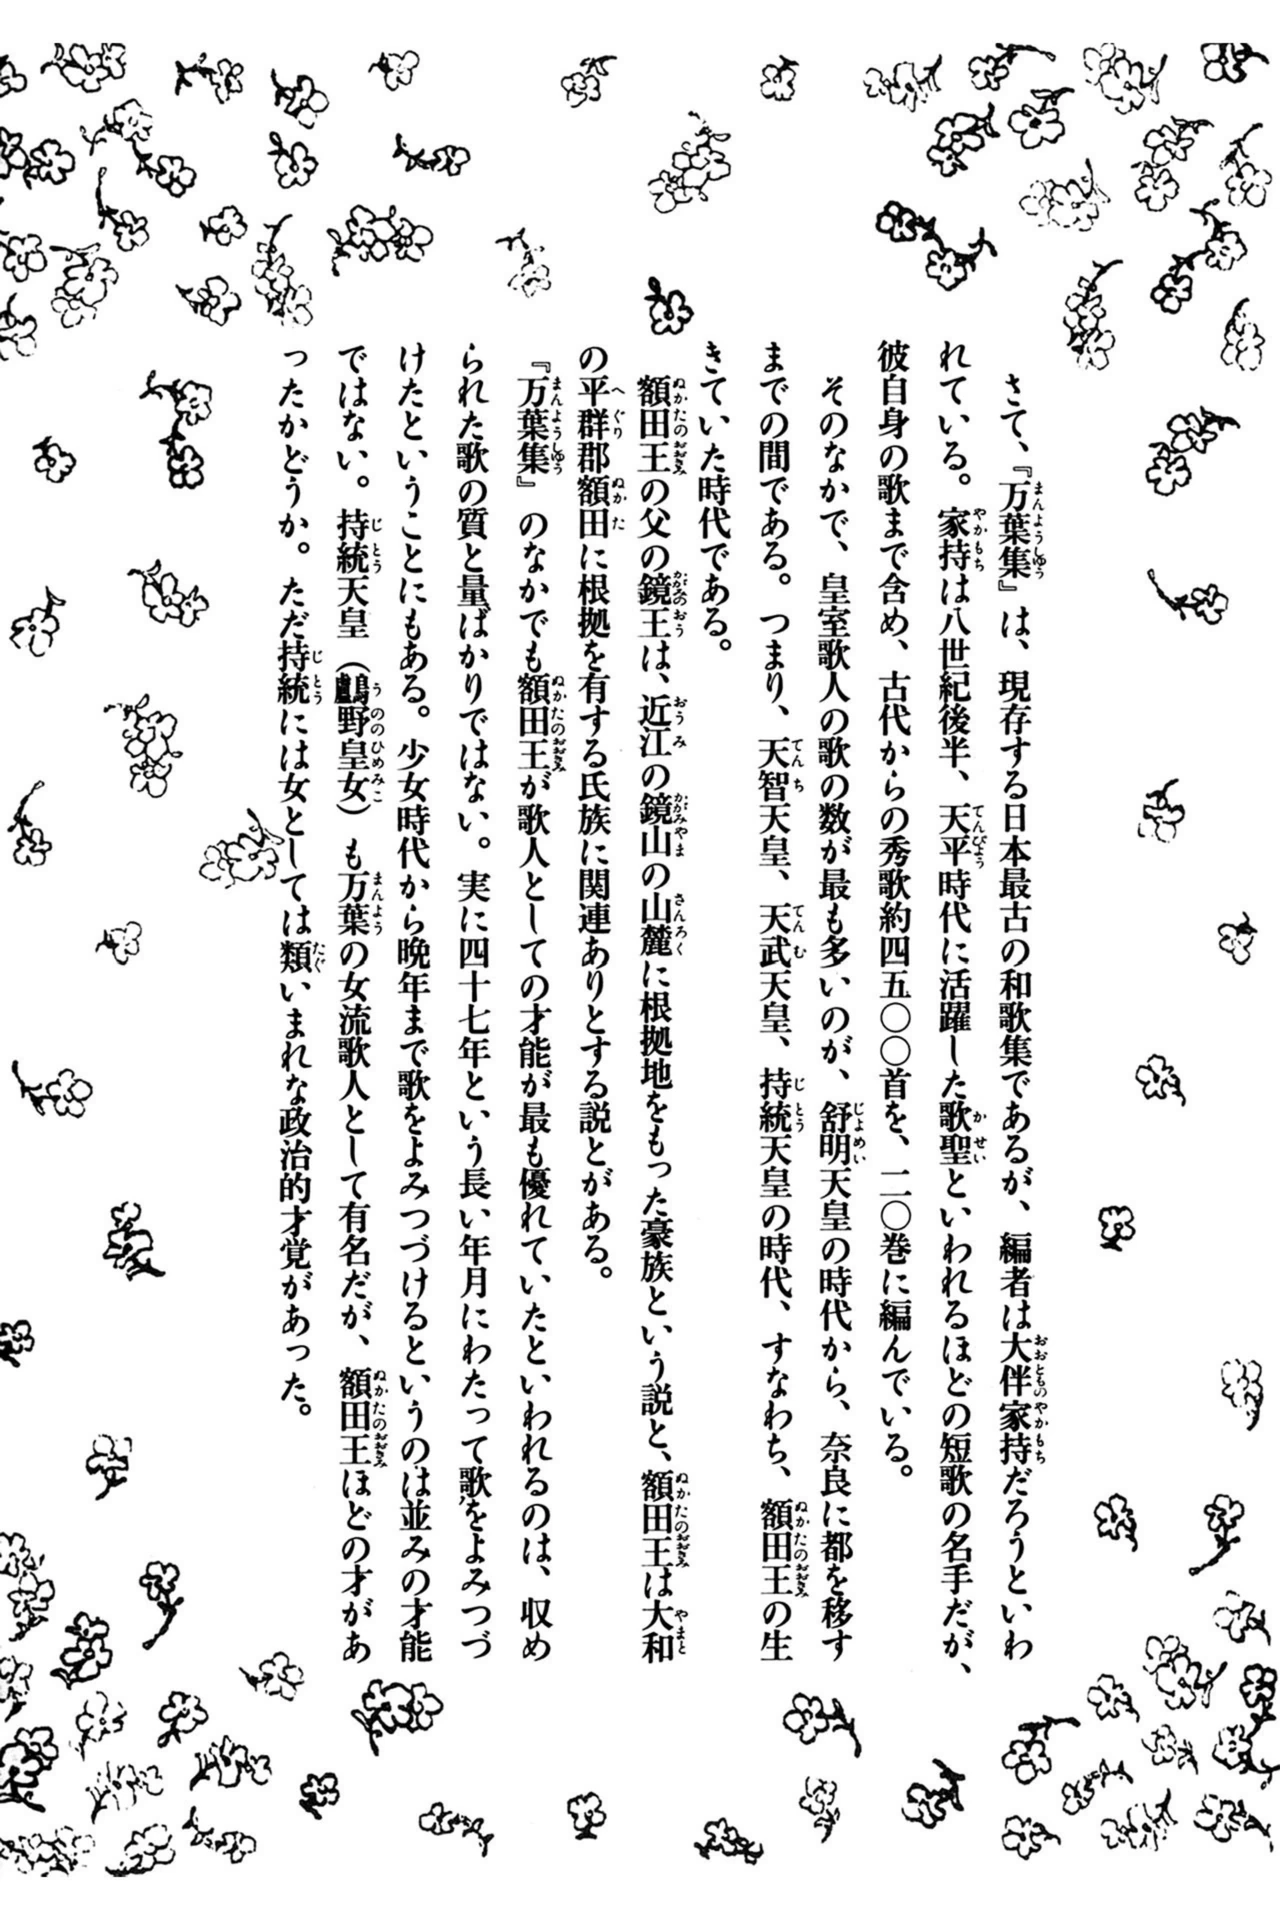 さて、『万葉集』は、現存する日本最古の和歌集であるが、編者は大伴家持だろうといわ
れている。家持は八世紀後半、天平時代に活躍した歌聖といわれるほどの短歌の名手だが、
彼自身の歌まで含め、古代からの秀歌約四五〇〇首を、二〇巻に編んでいる。
そのなかで、皇室歌人の歌の数が最も多いのが、舒明天皇の時代から、奈良に都を移す
までの間である。つまり、天智天皇、天武天皇、持統天皇の時代、すなわち、額田王の生
きていた時代である。
額田王の父の鏡王は、近江の鏡山の山麓に根拠地をもった豪族という説と、額田王は大和
の平群郡額田に根拠を有する氏族に関連ありとする説とがある。
『万葉集』のなかでも額田王が歌人としての才能が最も優れていたといわれるのは、収め
られた歌の質と量ばかりではない。実に四十七年という長い年月にわたって歌をよみつづ
けたということにもある。少女時代から晩年まで歌をよみつづけるというのは並みの才能
ではない。持統天皇（鸕野皇女）も万葉の女流歌人として有名だが、額田王ほどの才があ
ったかどうか。ただ持統には女としては類いまれな政治的才覚があった。